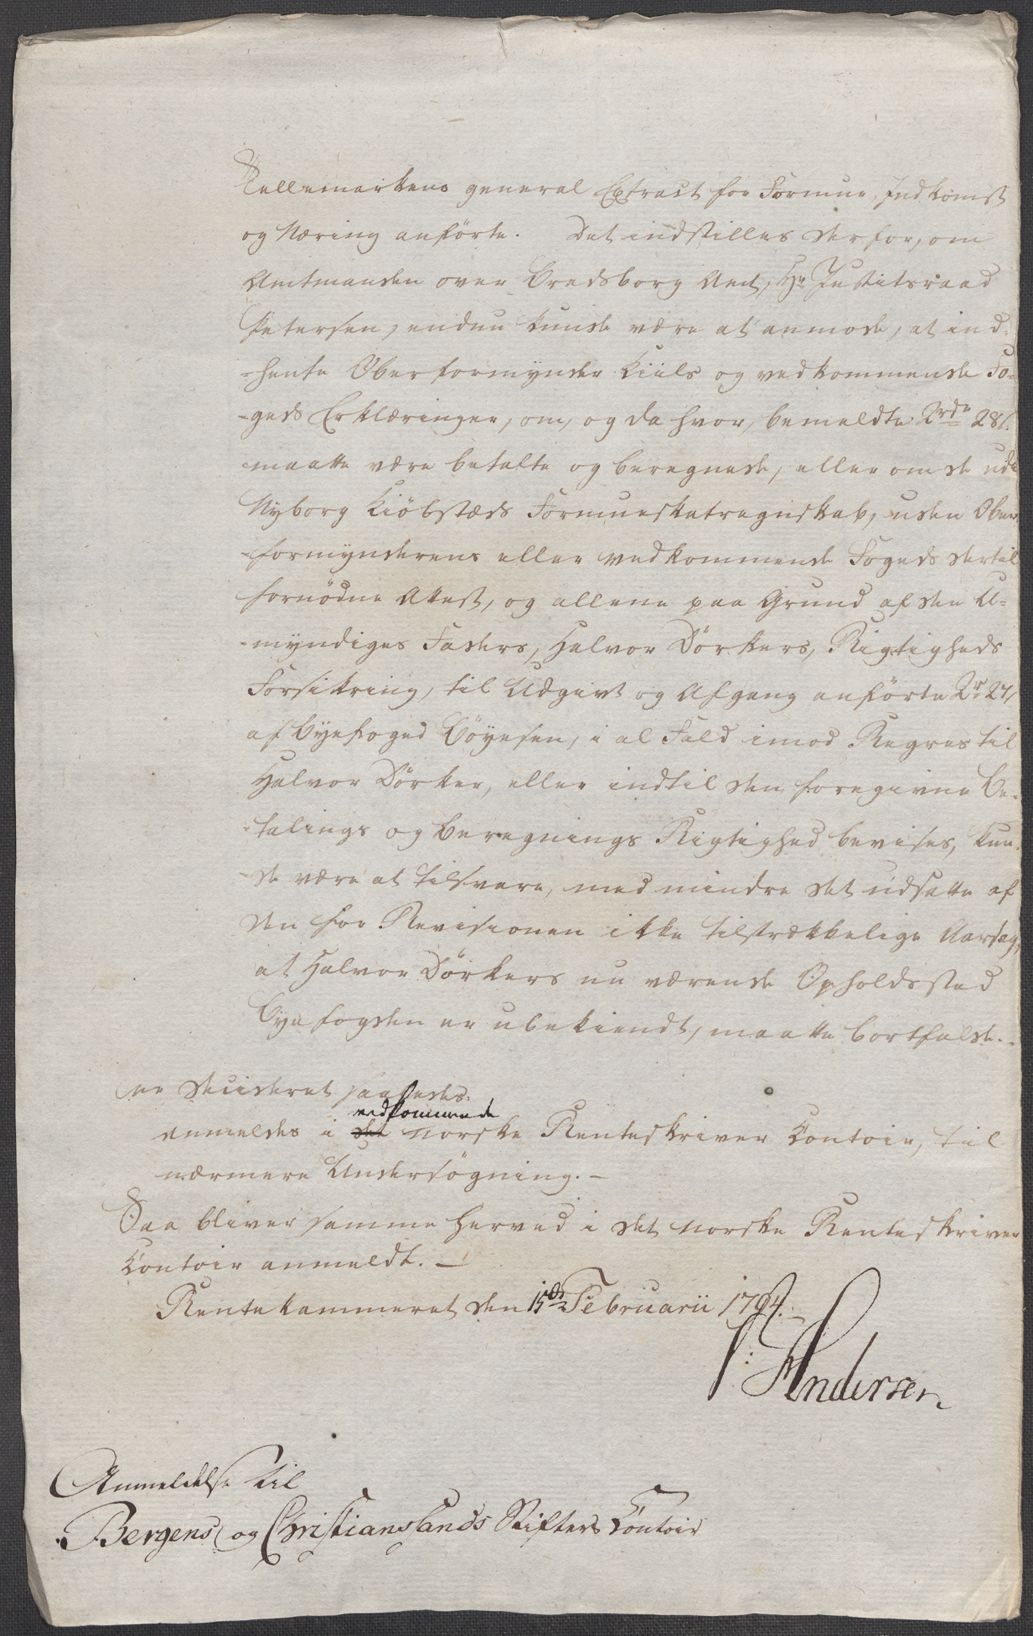 Tellemarkens general Extract for Formue, Indkomst
og Næring anförte. Det indstilles derfor, om
Amtmanden over Bradsberg Amt, Hr Justitsraad
Petersen, endnu kunde være at anmode, at ind-
-hente Oberformynder Kiils og vedkommende Fo-
-geds Erklæringer, om, og da hvor, bemeldte 2rdr 28s.
maatte være betalte og beregnede, eller om de udi
Nyborg Kiöbstæds Formueskatregnskab, uden Ober-
-formynderens eller vedkommende Fogeds dertil
fornödne Attest, og allene paa Grund af den U-
-myndiges Faders, Halvor Dörkers, Rigtigheds
Forsikring, til Udgivt og Afgang anförte 2r 27s
af Byefoged Böyesen, i al Fald imod Regres til
Halvor Dörker, eller indtil den foregivne Be-
-talings og Beregnings Rigtighed bevises, kun-
-de være at tilsvare, med mindre det udsatte af
den for Revisionen ikke tilstrækkelige Aarsag,
at Halvor Dörkers nu værende Opholdsstæd
Byefogden er ubekiendt, maatte bortfalde.-
er decideret saaledes:
vedkommende
anmeldes i det norske Renteskriver Contoir, til
nærmere Undersögning.-
Saa bliver samme herved i det norske Renteskriver
Contoir anmeldt.-
Rentekammeret den 15de Februarii 1794.
P: Andersen
Anmeldelse til
Bergens og Christiansands Stifters Contoir